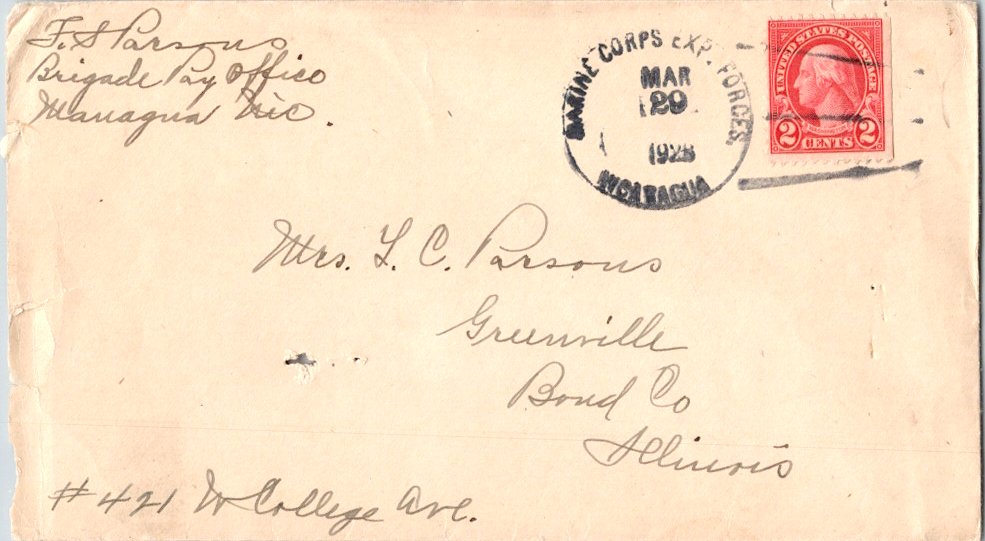 F. S Parsons
Brigade Pay Office
Managua Nic.
MARINE CORPS EXP. FORCES.
MAR
29
1928
NICARAGUA
UNITED STATES POSTAGE
2 CENTS 2
Mrs. L. C. Parsons
Greenville
Bond Co
Illinois
# 421 W College Ave.